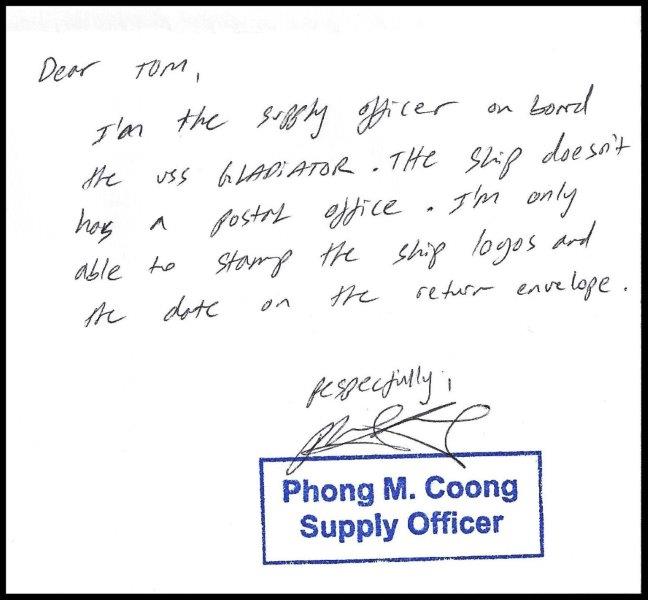 Dear TOM,
I'm the supply officer on board
the USS GLADIATOR. THE ship doesn't
has a postal office. I'm only
able to stamp the ship logos and
the date on the return envelope.
Respectfully,
Phong M. Coong
Supply Officer